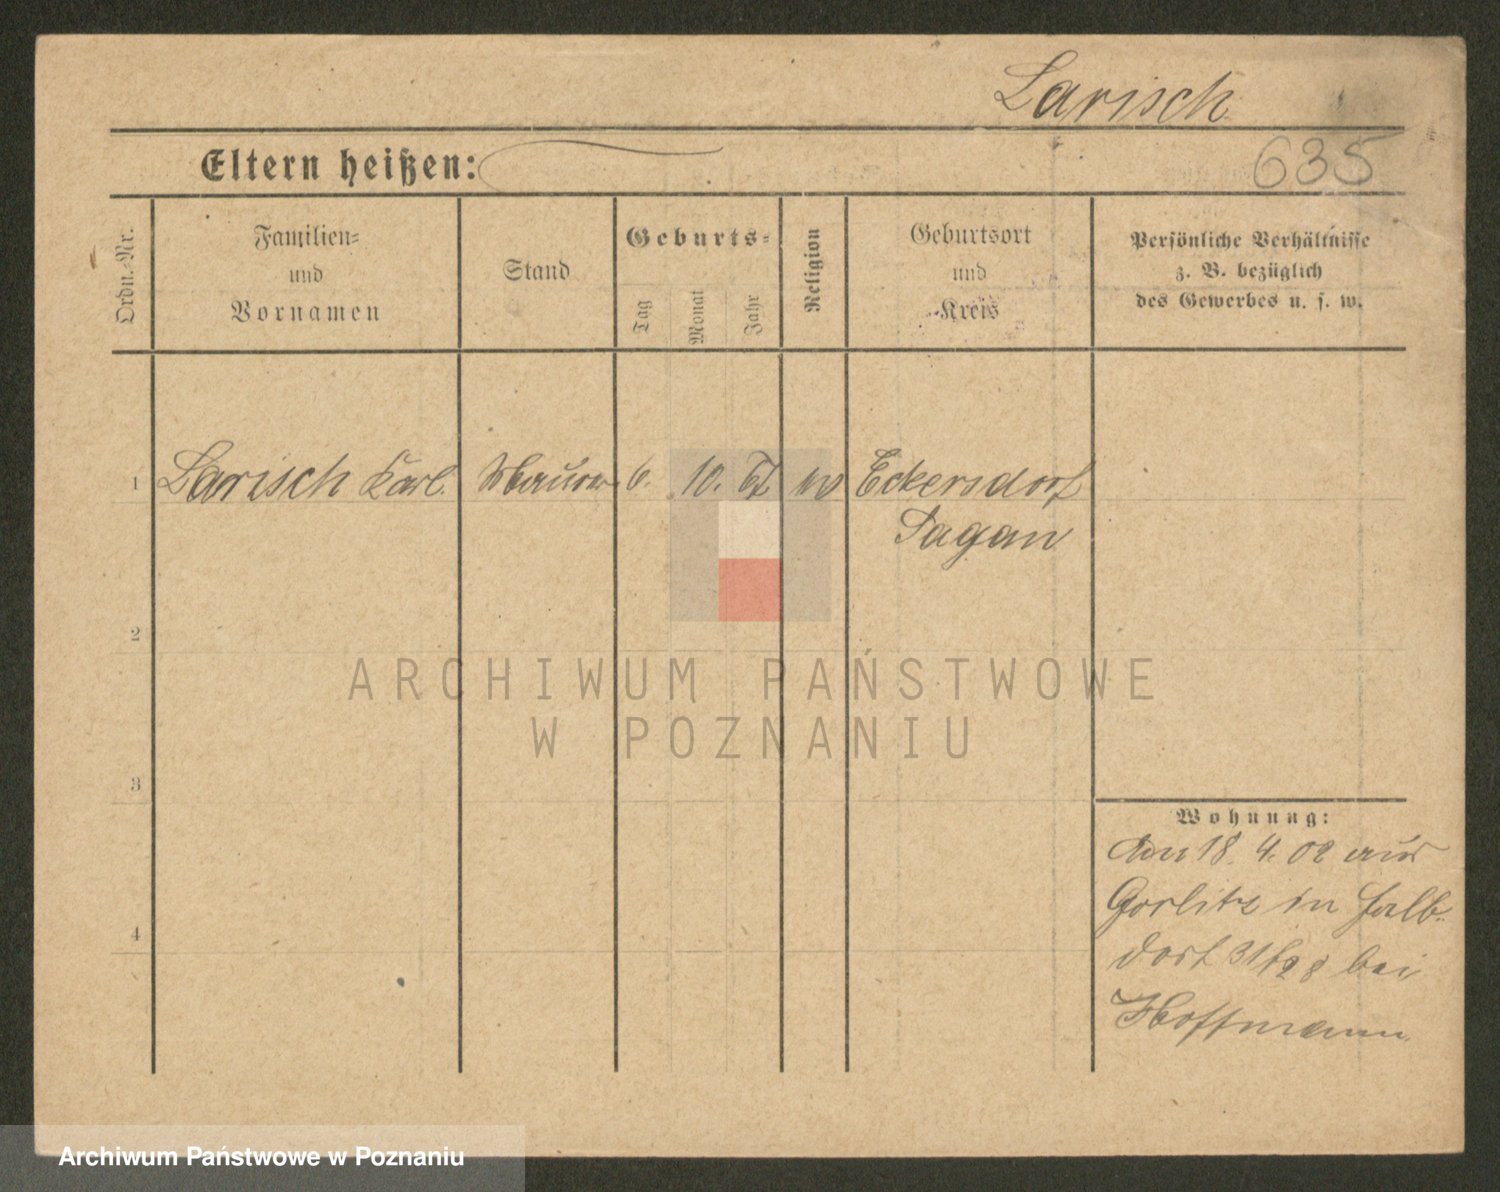 Larisch
Eltern heißen:
635
Ordn. Nr.
Familien-
und
Vornamen
Stand
Geburts-
Tag
Monat
Jahr
Religion
Geburtsort
und
Kreis
Persönliche Verhältnisse
z. B. bezüglich
des Gewerbes u. s. w.
1 Larisch Karl. Maurer 6. 10. 67 Eckersdorf
Sagan
2
3
4
Wohnung:
18. 4. 02 aus
Görlitz in Halb-
dorf bei
Hoffmann
ARCHIWUM PAŃSTWOWE
W POZNANIU
Archiwum Państwowe w Poznaniu